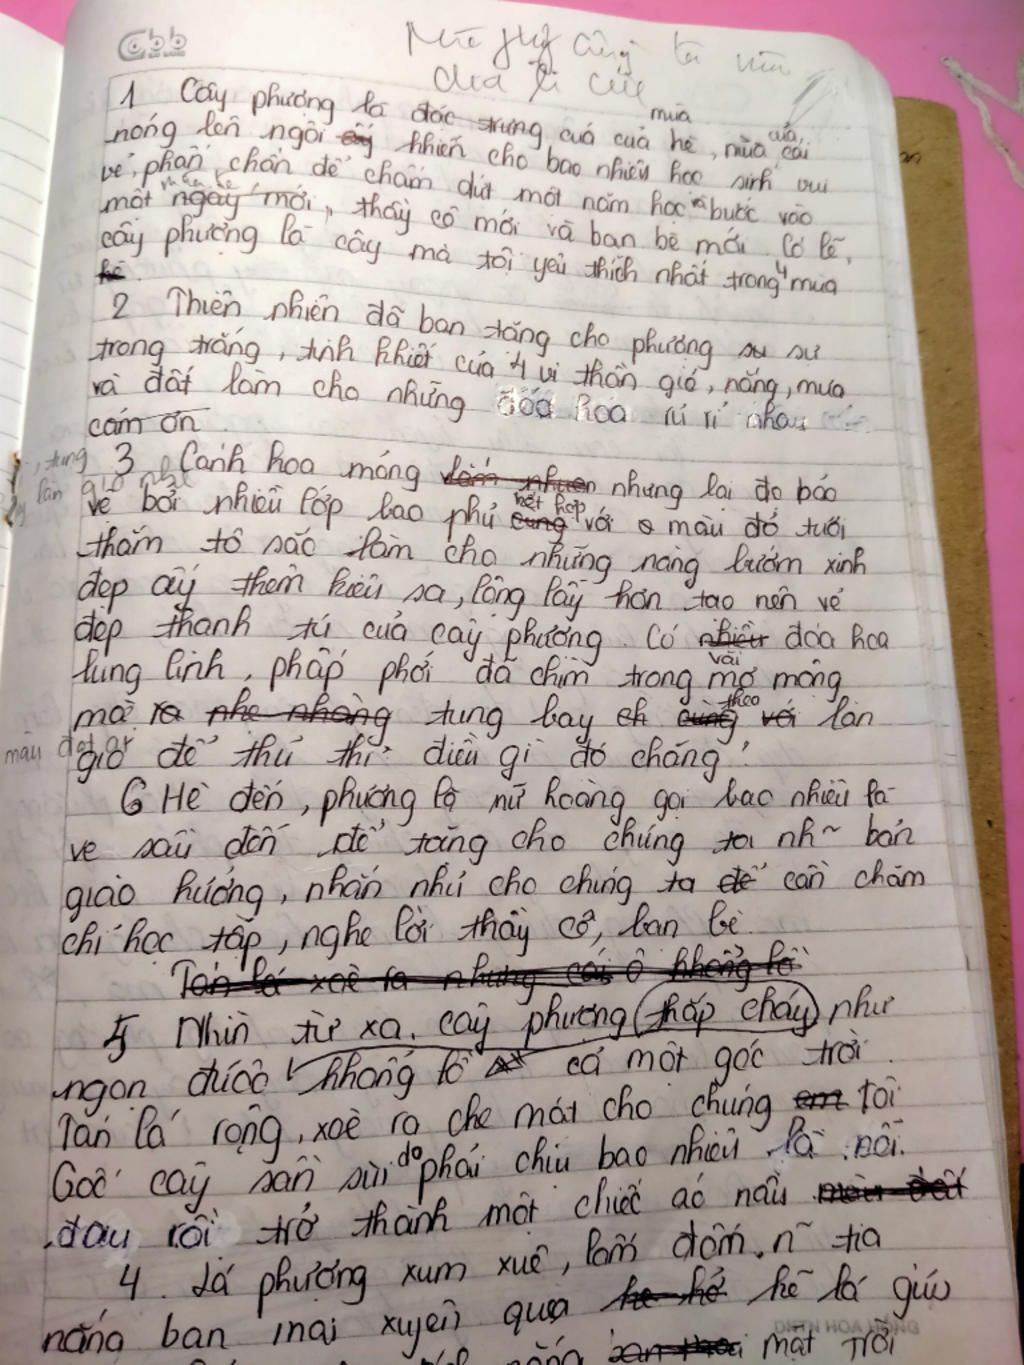 cabb
1 Cây phương là đăc trưng cuả cuả hè, mùa của cái
nóng lên ngôi khiến cho bao nhiêu học sinh vui
vẻ, phấn chấn để chấm dứt một năm học và bước vào
một mới, thầy cô mới và bạn bè mới. Có lẽ,
cây phương là cây mà tôi yêu thích nhất trong 4 mùa
hè.
2 Thiên nhiên đã ban tặng cho phương sự
trong trắng, tinh khiết của 4 vị thần gió, nắng, mưa
và đất làm cho những đóa hoa rủ rỉ nhau
cám ơn
3 Cánh hoa mỏng nhưng lại đc bảo
vệ bởi nhiều lớp bao phủ kết hợp với màu đỏ tươi
thắm tô sắc làm cho những nàng bướm xinh
đẹp ấy thêm kiêu sa, lộng lẫy hơn tạo nên vẻ
đẹp thanh tú của cây phương. Có vài đóa hoa
lung linh, phấp phới đã chìm trong mơ mộng
mà tung bay theo làn
gió để thủ thỉ điều gì đó chăng!
6 Hè đến, phương là nữ hoàng gọi bao nhiêu là
ve sầu đến để tặng cho chúng ta nh~ bản
giao hưởng, nhắn nhủ cho chúng ta cần chăm
chỉ học tập, nghe lời thầy cô, bạn bè.
Tán lá xoè ra như cái ô khổng lồ
5 Nhìn từ xa, cây phương thắp cháy như
ngọn đuốc khổng lồ cả một góc trời.
Tán lá rộng, xoè ra che mát cho chúng tôi
Gốc cây sần sùi do phải chịu bao nhiêu là nỗi
đau rồi trở thành một chiếc áo nâu
4. Lá phương xum xuê, lấm đốm. n~ tia
nắng ban mai xuyên qua kẽ lá giúp
mặt trời